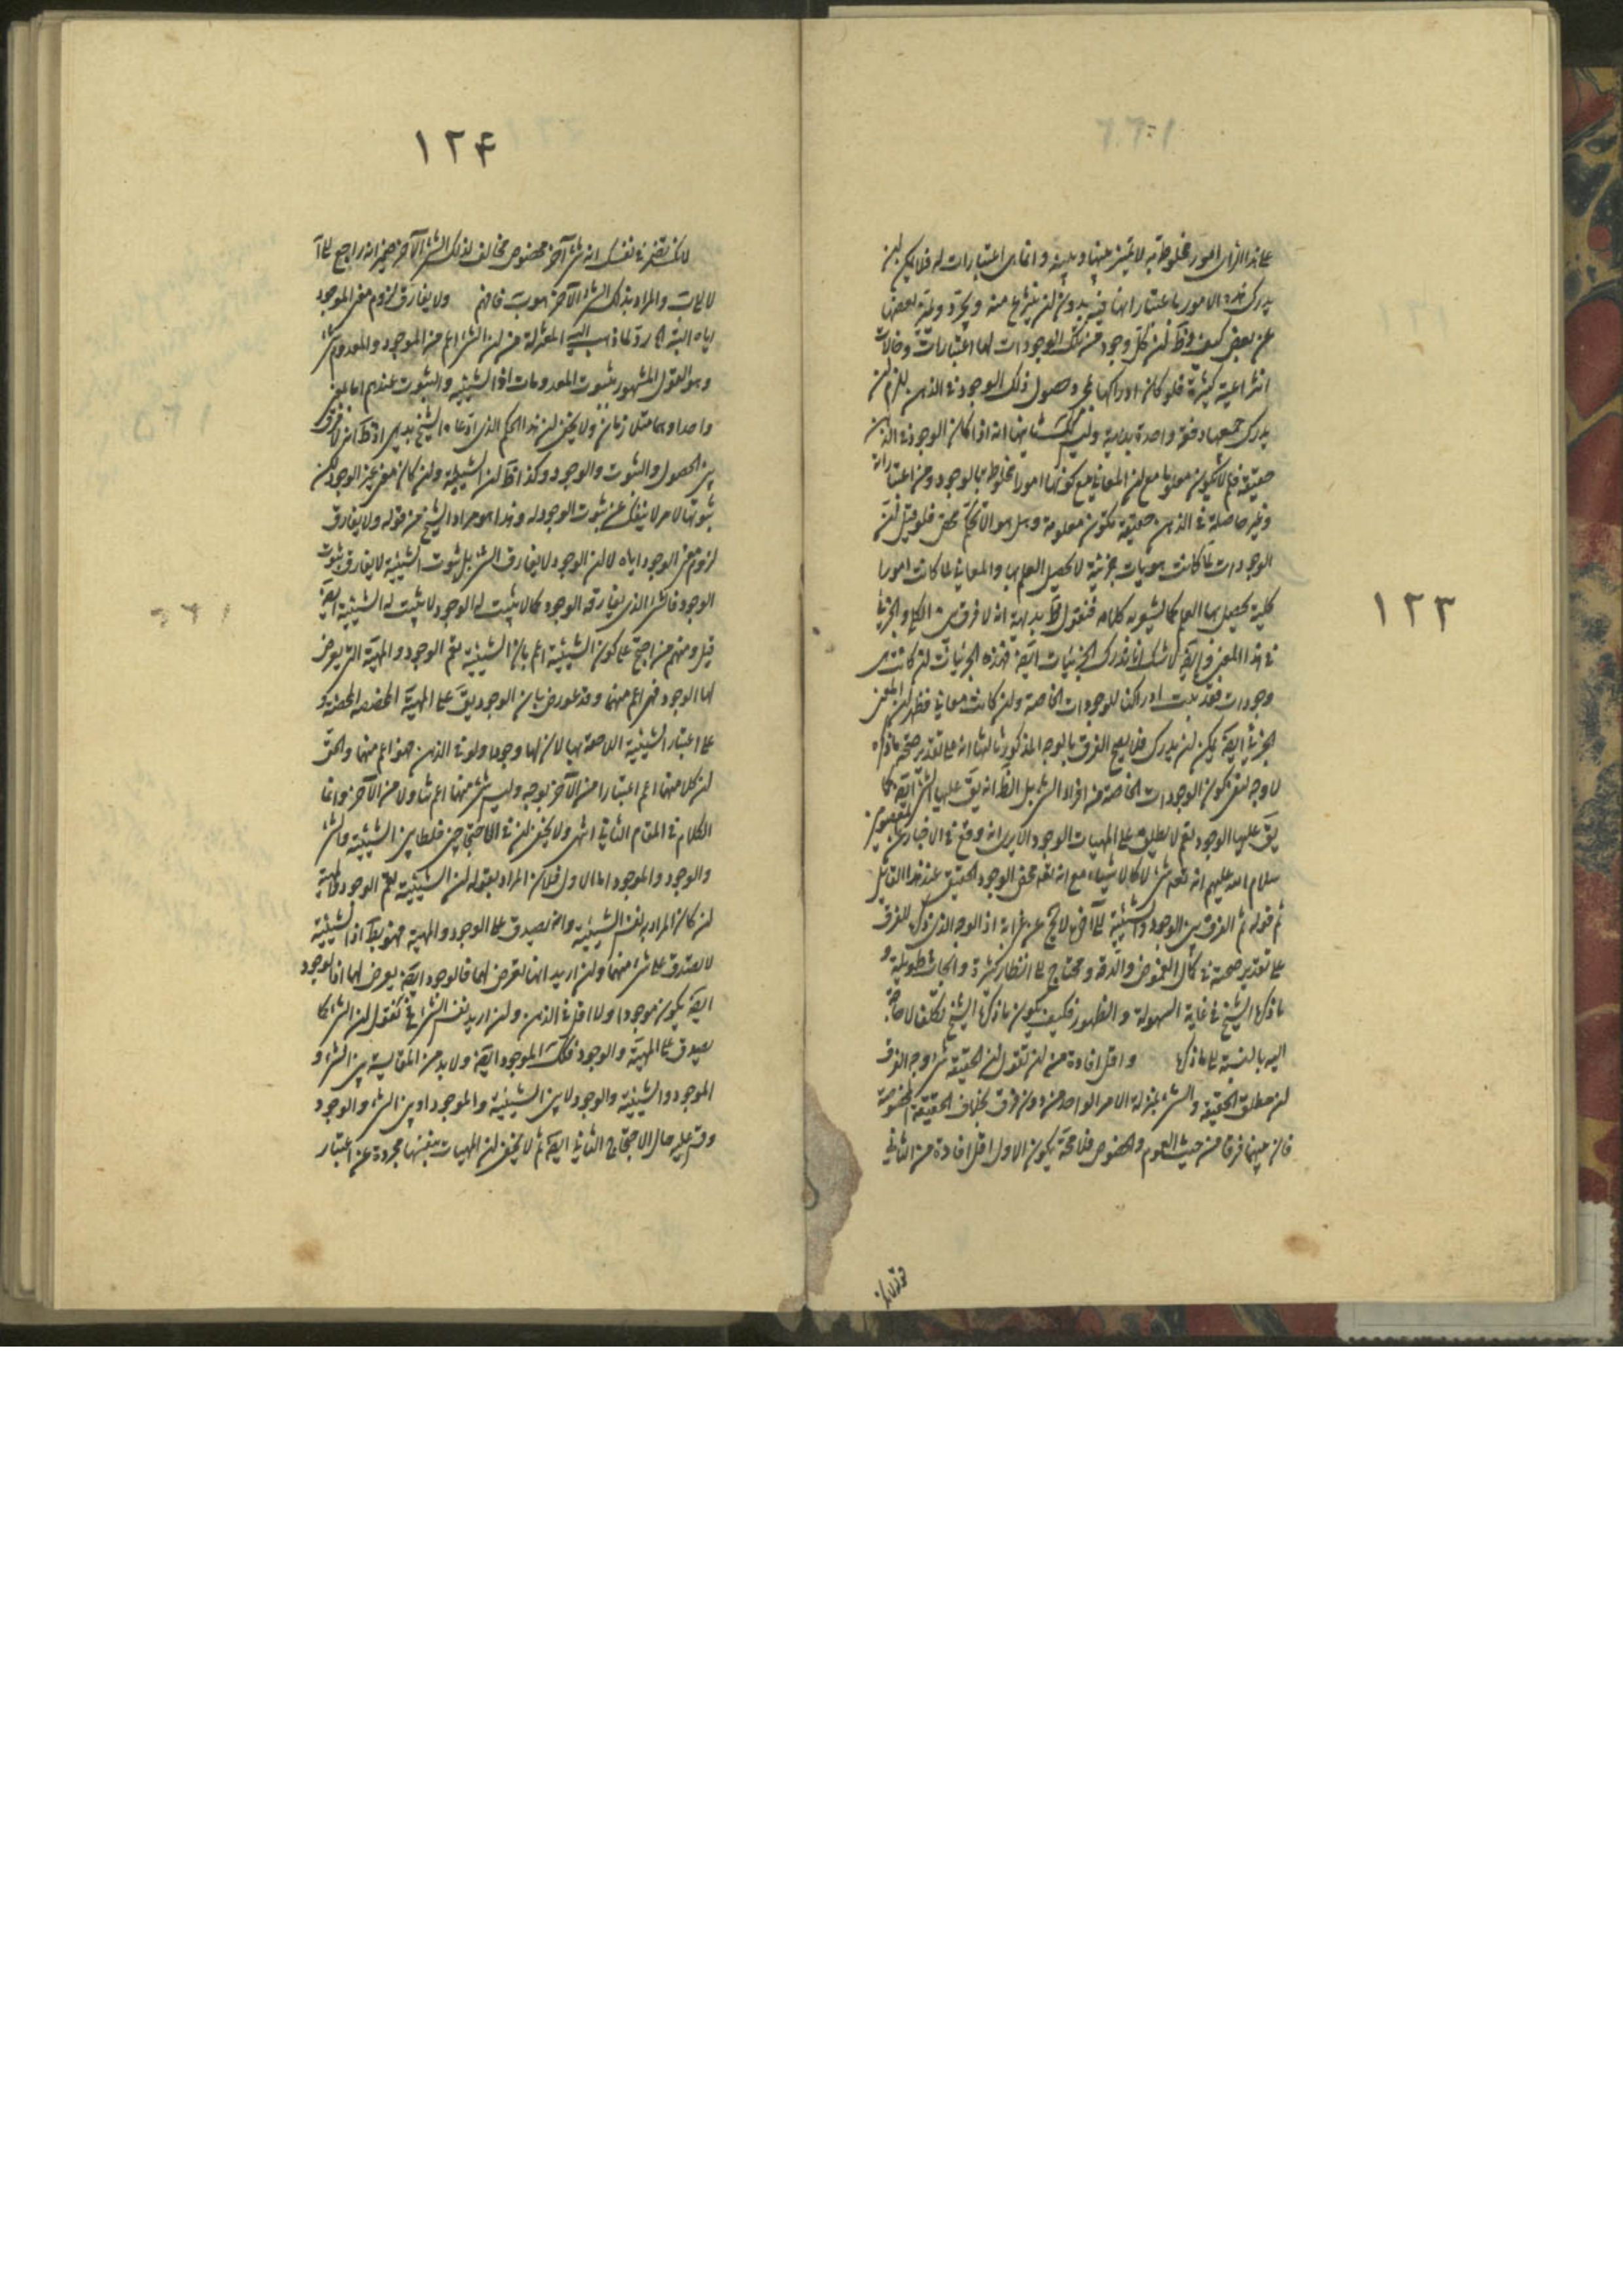 ١٢٣
على هذا الراى امور مخلوطة به لا تميز بينها وبينه وانما هى اعتبارات له فلا يمكن ان
يدرك هذه الامور باعتبار انها فيه بدون ان ينتزع منه ويجرد وتميز بعضها
عن بعض كيف وظ ان كل وجود من تلك الوجودات لها اعتبارات وحالات
انتزاعية كثيرة فلو كان ادراكها بمجرد حصول ذلك الوجود فى الذهن يلزم ان
يدرك جميعها دفعة واحدة بديهة وليس كك ثانيها انه اذا كان الوجود فى الذهن
حقيقة فلم لا يكون معلوما مع ان المعانى مع كونها امورا مخلوطة بالوجود ومن اعتباراته
وغير حاصلة فى الذهن حقيقة تكون معلومة وهل هو الا تحكم محض فلو قيل ان
الوجودات لما كانت هويات جزئية لا يحصل العلم بها والمعانى لما كانت امورا
كلية يحصل بها العلم كما يشعر به كلامه فنقول نحكم بديهة انه لا فرق بين الكلى والجزئى
فى هذا المعنى وايضا لا شك انا ندرك الجزئيات ايضا فهذه الجزئيات ان كانت هى
وجودات فقد ثبت ادراكنا للوجودات الخاصة وان كانت معانى فظهر ان المعنى
الجزئى ايضا يمكن ان يدرك فلا يصح الفرق بالوجه المذكور ثالثها انه على تقدير صحة ما ذكره
لا وجه لنفى كون الوجودات الخاصة من افراد الشىء بل الظ انه يق عليها الشىء ايضا كما
يق عليها الوجود نعم لا يطلق على المهيات الوجود الا يرى انه وقع فى الاخبار عن المعصومين
سلام الله عليهم انه تعم شىء لا كالاشياء مع انه تعم محض الوجود الحقيقى عند هذا القائل
ثم قوله ثم الفرق بين الوجود والشيئية الى آخره لا يخ عن غرابة اذ الوجه الذى ذكره للفرق
على تقدير صحته فى كمال الغموض والدقة ومحتاج الى انظار كثيرة وابحاث طويلة و
ما ذكره الشيخ فى غاية السهولة والظهور فكيف يكون ما ذكره الشيخ تكلفا لا حاجة
اليه بالنسبة الى ما ذكره واقل افادة من ان نقول ان الحقيقة شىء وجه الفرق
ان مطلق الحقيقة والشىء بمنزلة الامر الواحد من دون فرق بخلاف الحقيقة المخصوصة
فان بينهما فرقا من حيث العموم والخصوص فلا محة يكون الاول اقل افادة من الثانى
١٢۴
لانك تضمر فى نفسك انه شىء آخر مخصوص مخالف لذلك الشىء الآخر ضمير انه راجع الى آ
لا الى ب والمراد بذلك الشىء الآخر هو ب فافهم ولا يفارق لزوم معنى الموجود
اياه البتة اه رد لما ذهب اليه المعتزلة من ان الشىء اعم من الموجود والمعدوم شىء
وهو القول المشهور بثبوت المعدومات اذ الشيئية والثبوت عندهم اما بمعنى
واحد او هما متلازمان ولا يخفى ان هذا الحكم الذى ادعاه الشيخ بديهى اذ ظ انه لا فرق
بين الحصول والثبوت والوجود وكذا ظ ان الشيئية وان كان معنى غير الوجود لكن
ثبوتها لامر لا ينفك عن ثبوت الوجود له وهذا هو مراد الشيخ من قوله ولا يفارق
لزوم معنى الوجود اياه لا ان الوجود لا يفارق الشىء بل ثبوت الشيئية لا يفارق ثبوت
الوجود فالشىء الذى يفارقه الوجود كما لا يثبت له الوجود لا يثبت له الشيئية ايضا
قيل ومنهم من احتج على كون الشيئية اعم بان الشيئية تعم الوجود والمهية التى يعرض
لها الوجود فهى اعم منهما وقد عورض بان الوجود يق على المهية المخصصة المحضة و
على اعتبار الشيئية اللاحقة بها لان لها وجودا ولو فى الذهن فهو اعم منهما والحق
ان كلا منهما اعم اعتبارا من الآخر بوجه وليس شىء منهما اعم تناولا من الآخر وانما
الكلام فى المقام الثانى انتهى ولا يخفى ان فى الاحتجاجين خلطا بين الشيئية والشىء
والوجود والموجود اما الاول فلان المراد بقوله ان الشيئية تعم الوجود والمهية
ان كان المراد به نفس الشيئية وانه يصدق على الوجود والمهية فهو بط اذ الشيئية
لا يصدق على شىء منهما وان اريد انها تعرض لهما فالوجود ايضا يعرض لهما اذ الوجود
ايضا يكون موجودا ولا اقل فى الذهن وان اريد نفس الشىء فح نقول ان الشىء كما
يصدق على المهية والوجود فكك الموجود ايضا ولا بد من المقايسة بين الشىء و
الموجود والشيئية والوجود لا بين الشيئية والموجود او بين الشىء والوجود
وقس عليه حال الاحتجاج الثانى ايضا ثم لا يخفى ان المهيات بنفسها مجردة عن اعتبار